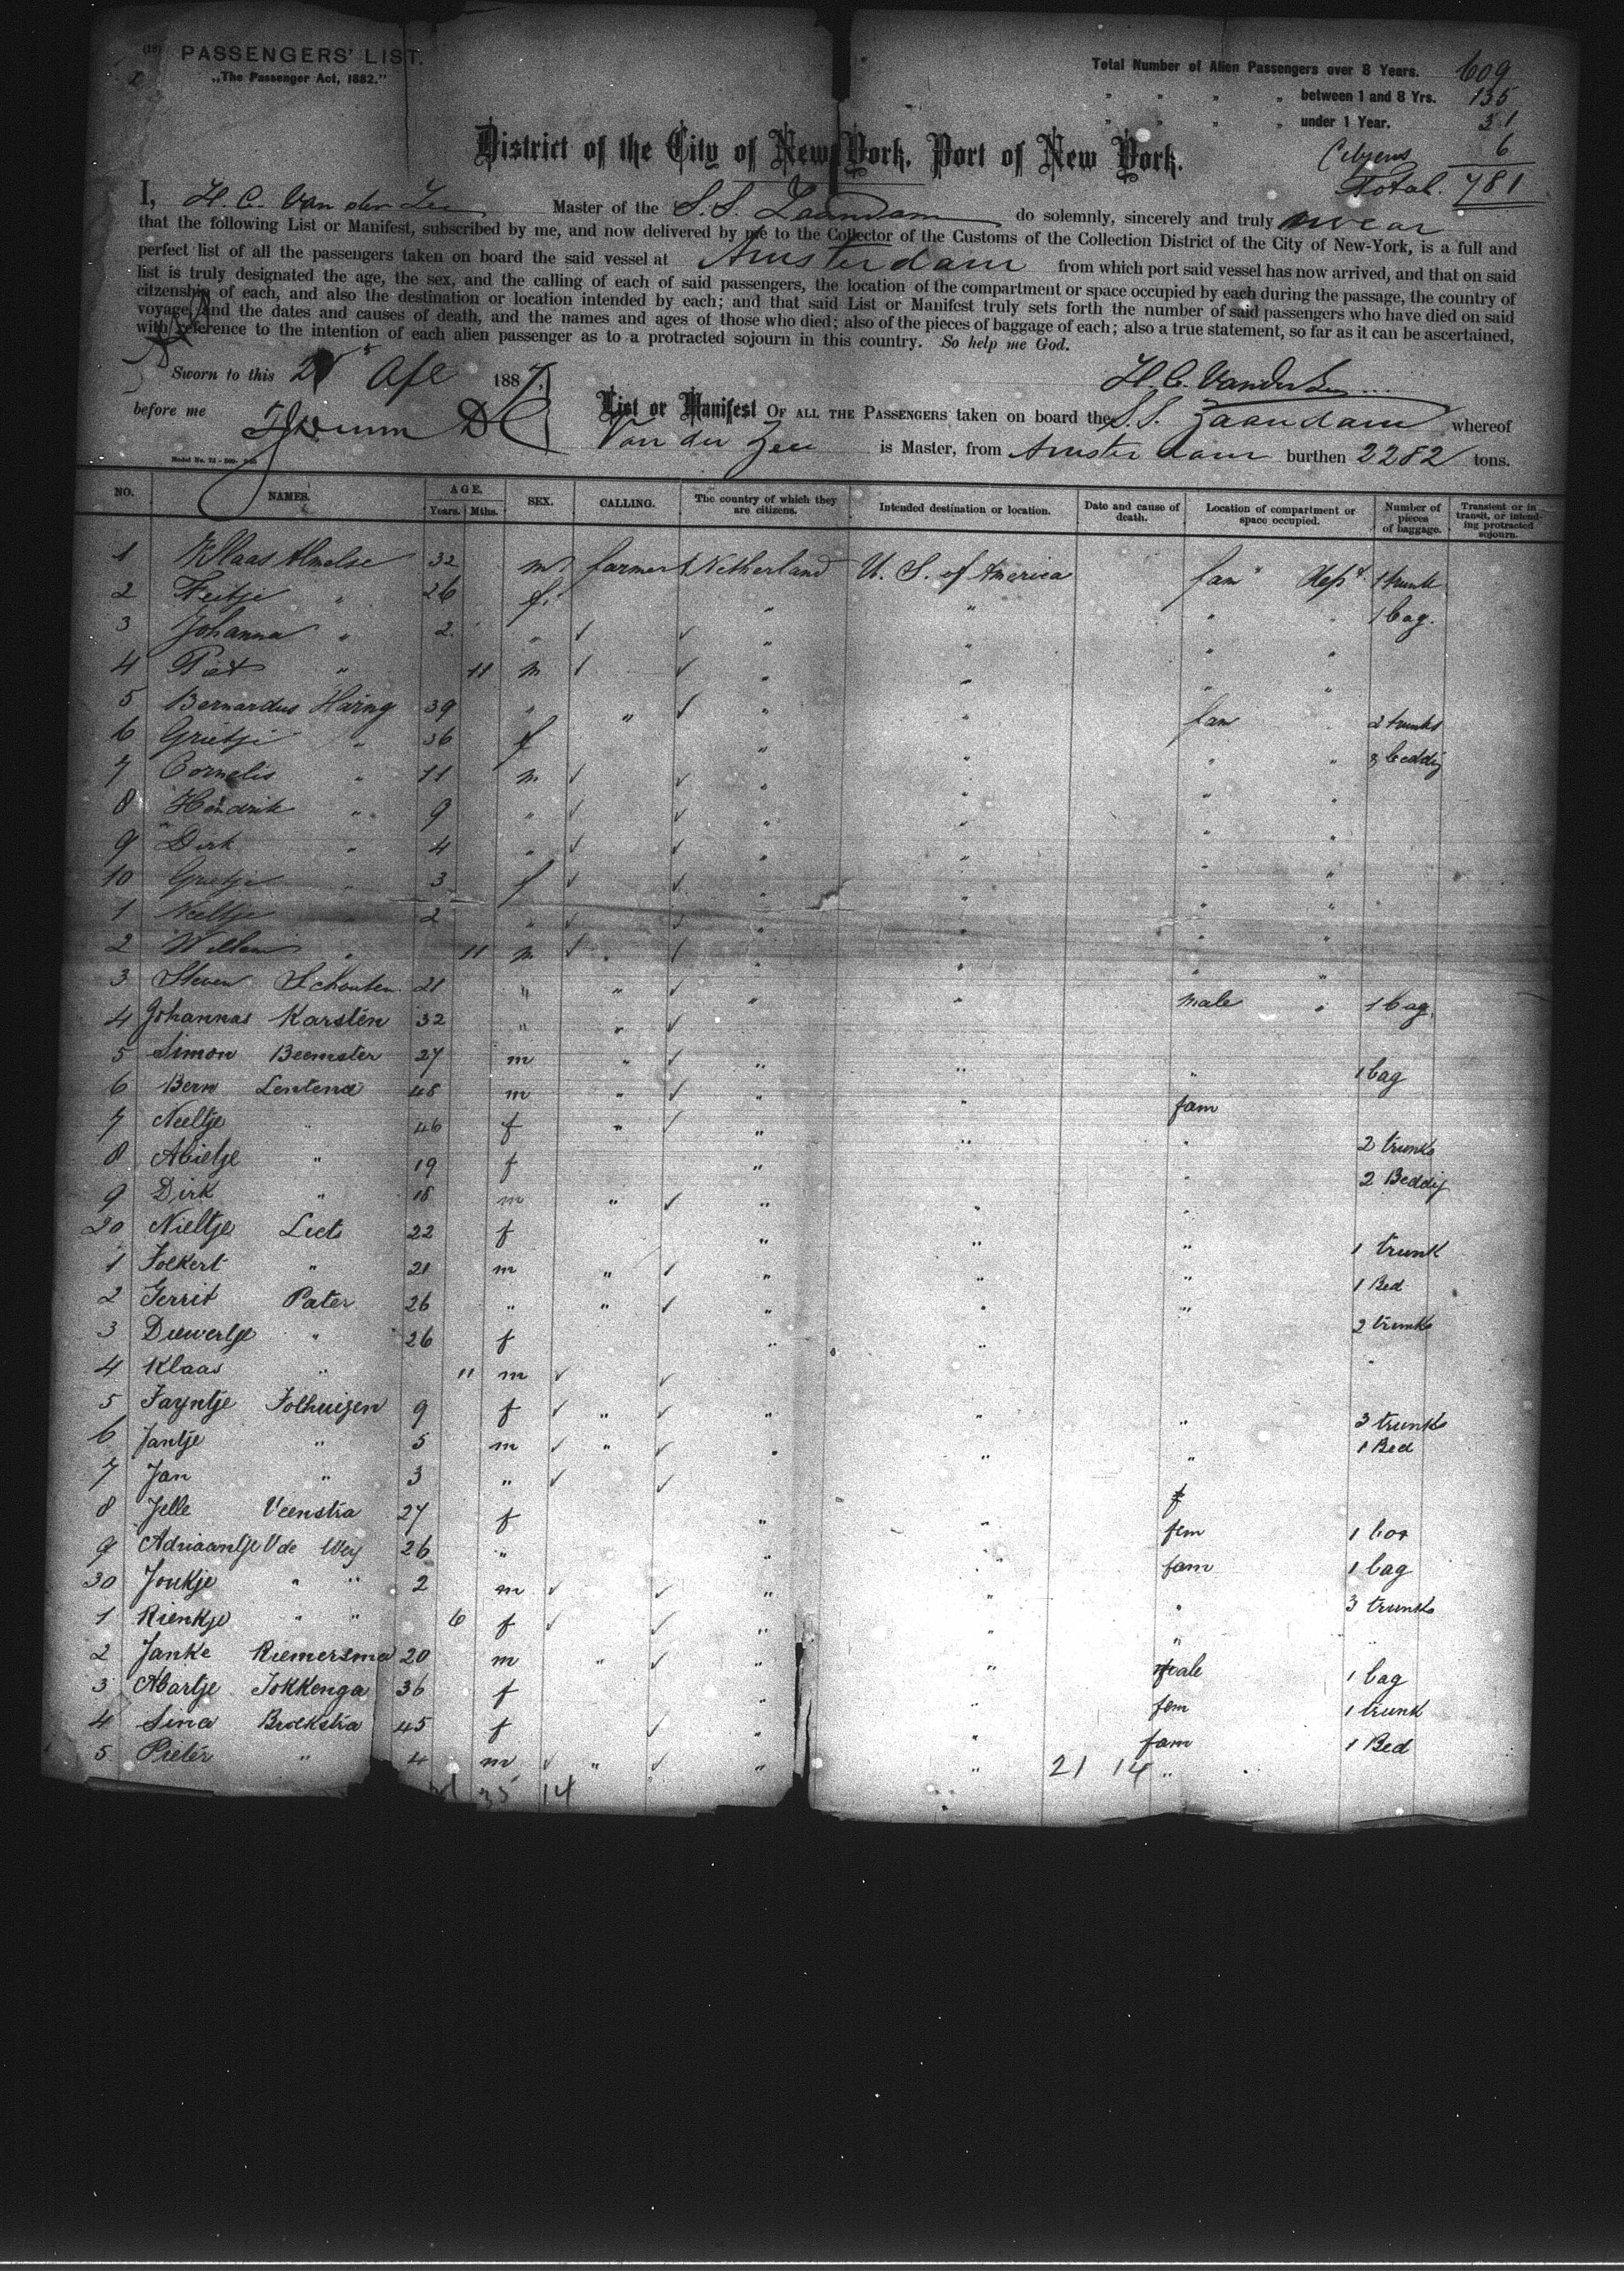 (18) PASSENGERS' LIST.
„The Passenger Act, 1882."
Total Number of Alien Passengers over 8 Years. 609
" " " " between 1 and 8 Yrs. 135
" " " " under 1 Year. 31
Citizens 6
Total. 781
District of the City of New York, Port of New York.
I, H. C. Van der Zee Master of the S.S. Zaandam do solemnly, sincerely and truly swear
that the following List or Manifest, subscribed by me, and now delivered by me to the Collector of the Customs of the Collection District of the City of New-York, is a full and
perfect list of all the passengers taken on board the said vessel at Amsterdam from which port said vessel has now arrived, and that on said
list is truly designated the age, the sex, and the calling of each of said passengers, the location of the compartment or space occupied by each during the passage, the country of
citzenship of each, and also the destination or location intended by each; and that said List or Manifest truly sets forth the number of said passengers who have died on said
voyage, and the dates and causes of death, and the names and ages of those who died; also of the pieces of baggage of each; also a true statement, so far as it can be ascertained,
with reference to the intention of each alien passenger as to a protracted sojourn in this country. So help me God.
Sworn to this Apl 1887, H. C. Van der Zee
before me
List or Manifest OF ALL THE PASSENGERS taken on board the S.S. Zaandam whereof
Van der Zee is Master, from Amsterdam burthen 2282 tons.
NO. NAMES. AGE. Years. Mths. SEX. CALLING. The country of which they are citizens. Intended destination or location. Date and cause of death. Location of compartment or space occupied. Number of pieces of baggage. Transient or in transit, or intending protracted sojourn.
1 Klaas 32 m farmer Netherland U. S. of America fam Dept 1 trunk
2 " 26 f " " " 1 bag.
3 Johanna " 2 " " " " "
4 Piet " 11 m " " " "
5 Bernardus Haring 39 " " " " fam 2 trunks
6 Grietje " 36 f " " " " 3 bedding
7 Cornelis " 11 m " " "
8 Hendrik " 9 " " " " "
9 Dirk " 4 " " " " "
10 Grietje " 3 f " " " "
1 Neeltje " 2 " " " " "
2 Willem " 11 m " " " "
3 Steven Schouten 21 " " " " male " 1 bag.
4 Johannas Karsten 32 " "
5 Simon Beemster 27 m " " " " 1 bag
6 Bern Lentena 48 m " " " fam
7 Neeltje " 46 f " " " " 2 trunks
8 Abietje " 19 f " " 2 Bedding
9 Dirk " 18 m " " " "
20 Nieltje Leets 22 f " " " 1 trunk
1 Folkert " 21 m " " " " 1 Bed
2 Gerrit Pater 26 " " " " " 2 trunks
3 Diewertje " 26 f " " "
4 Klaas " 11 m
5 Fayntje Folhuizen 9 f " " " " 3 trunks
6 Jantje " 5 m " " " " 1 Bed
7 Jan " 3 "
8 Jelle Veenstra 27 f " " fem 1 box
9 Adriaantje V de Wey 26 " " " fam 1 bag
30 Joukje " " 2 m " " " 3 trunks
1 Rienkje " " 6 f " " " "
2 Janke Riemersma 20 m " " " male 1 bag
3 Abartje Tokkenga 36 f " " fem 1 trunk
4 Sina Broekstra 45 f " " fam 1 Bed
5 Pieter " 4 m " " " "
35 14 21 14